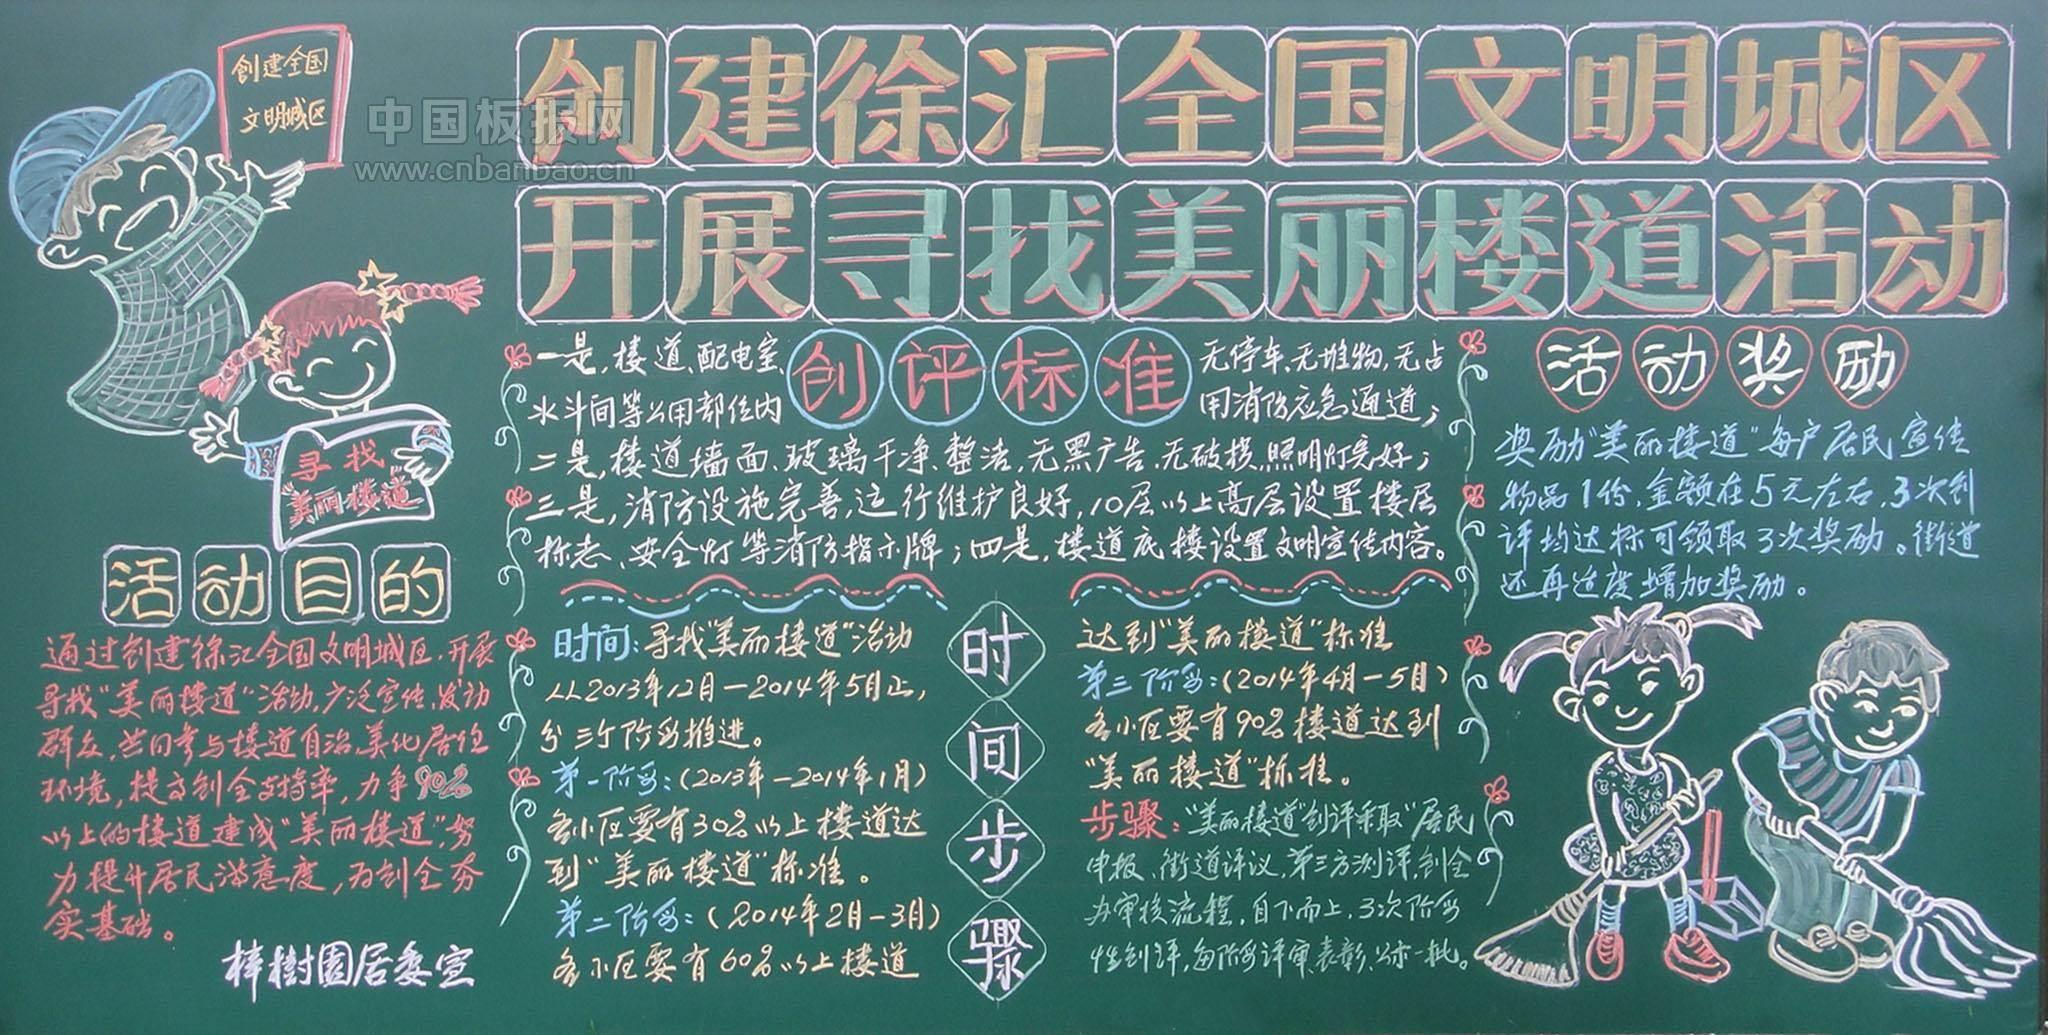 创建徐汇全国文明城区
开展寻找美丽楼道活动
創建全国
文明城区
中国板报网
www.cnbanbao.cn
寻找
"美丽楼道"
活动目的
通过创建徐汇全国文明城区,开展
寻找"美丽楼道"活动,广泛宣传、发动
群众,共同参与楼道自治,美化居住
环境,提高创全支持率,力争90%
以上的楼道建成"美丽楼道",努
力提升居民满意度,为创全夯
实基础。
梓樹園居委宣
创评标准
一是,楼道、配电室、
水斗间等公用部位内
无停车、无堆物,无占
用消防应急通道;
二是,楼道墙面、玻璃干净、整洁,无黑广告、无破损,照明灯完好;
三是,消防设施完善,运行维护良好,10层以上高层设置楼层
标志、安全灯等消防指示牌;四是,楼道底楼设置文明宣传内容。
时间步骤
时间:寻找"美丽楼道"活动
从2013年12月—2014年5月止,
分三个阶段推进。
第一阶段:(2013年—2014年1月)
各小区要有30%以上楼道达
到"美丽楼道"标准。
第二阶段:(2014年2月—3月)
各小区要有60%以上楼道
达到"美丽楼道"标准
第三阶段:(2014年4月—5月)
各小区要有90%楼道达到
"美丽楼道"标准。
步骤:"美丽楼道"创评采取"居民
申报、街道评议,第三方测评,创全
办审核流程,自下而上,3次阶段
性创评,每阶段评审、表彰、公示一批。
活动奖励
奖励"美丽楼道"每户居民宣传
物品1份,金额在5元左右,3次创
评均达标可领取3次奖励。街道
还再适度增加奖励。